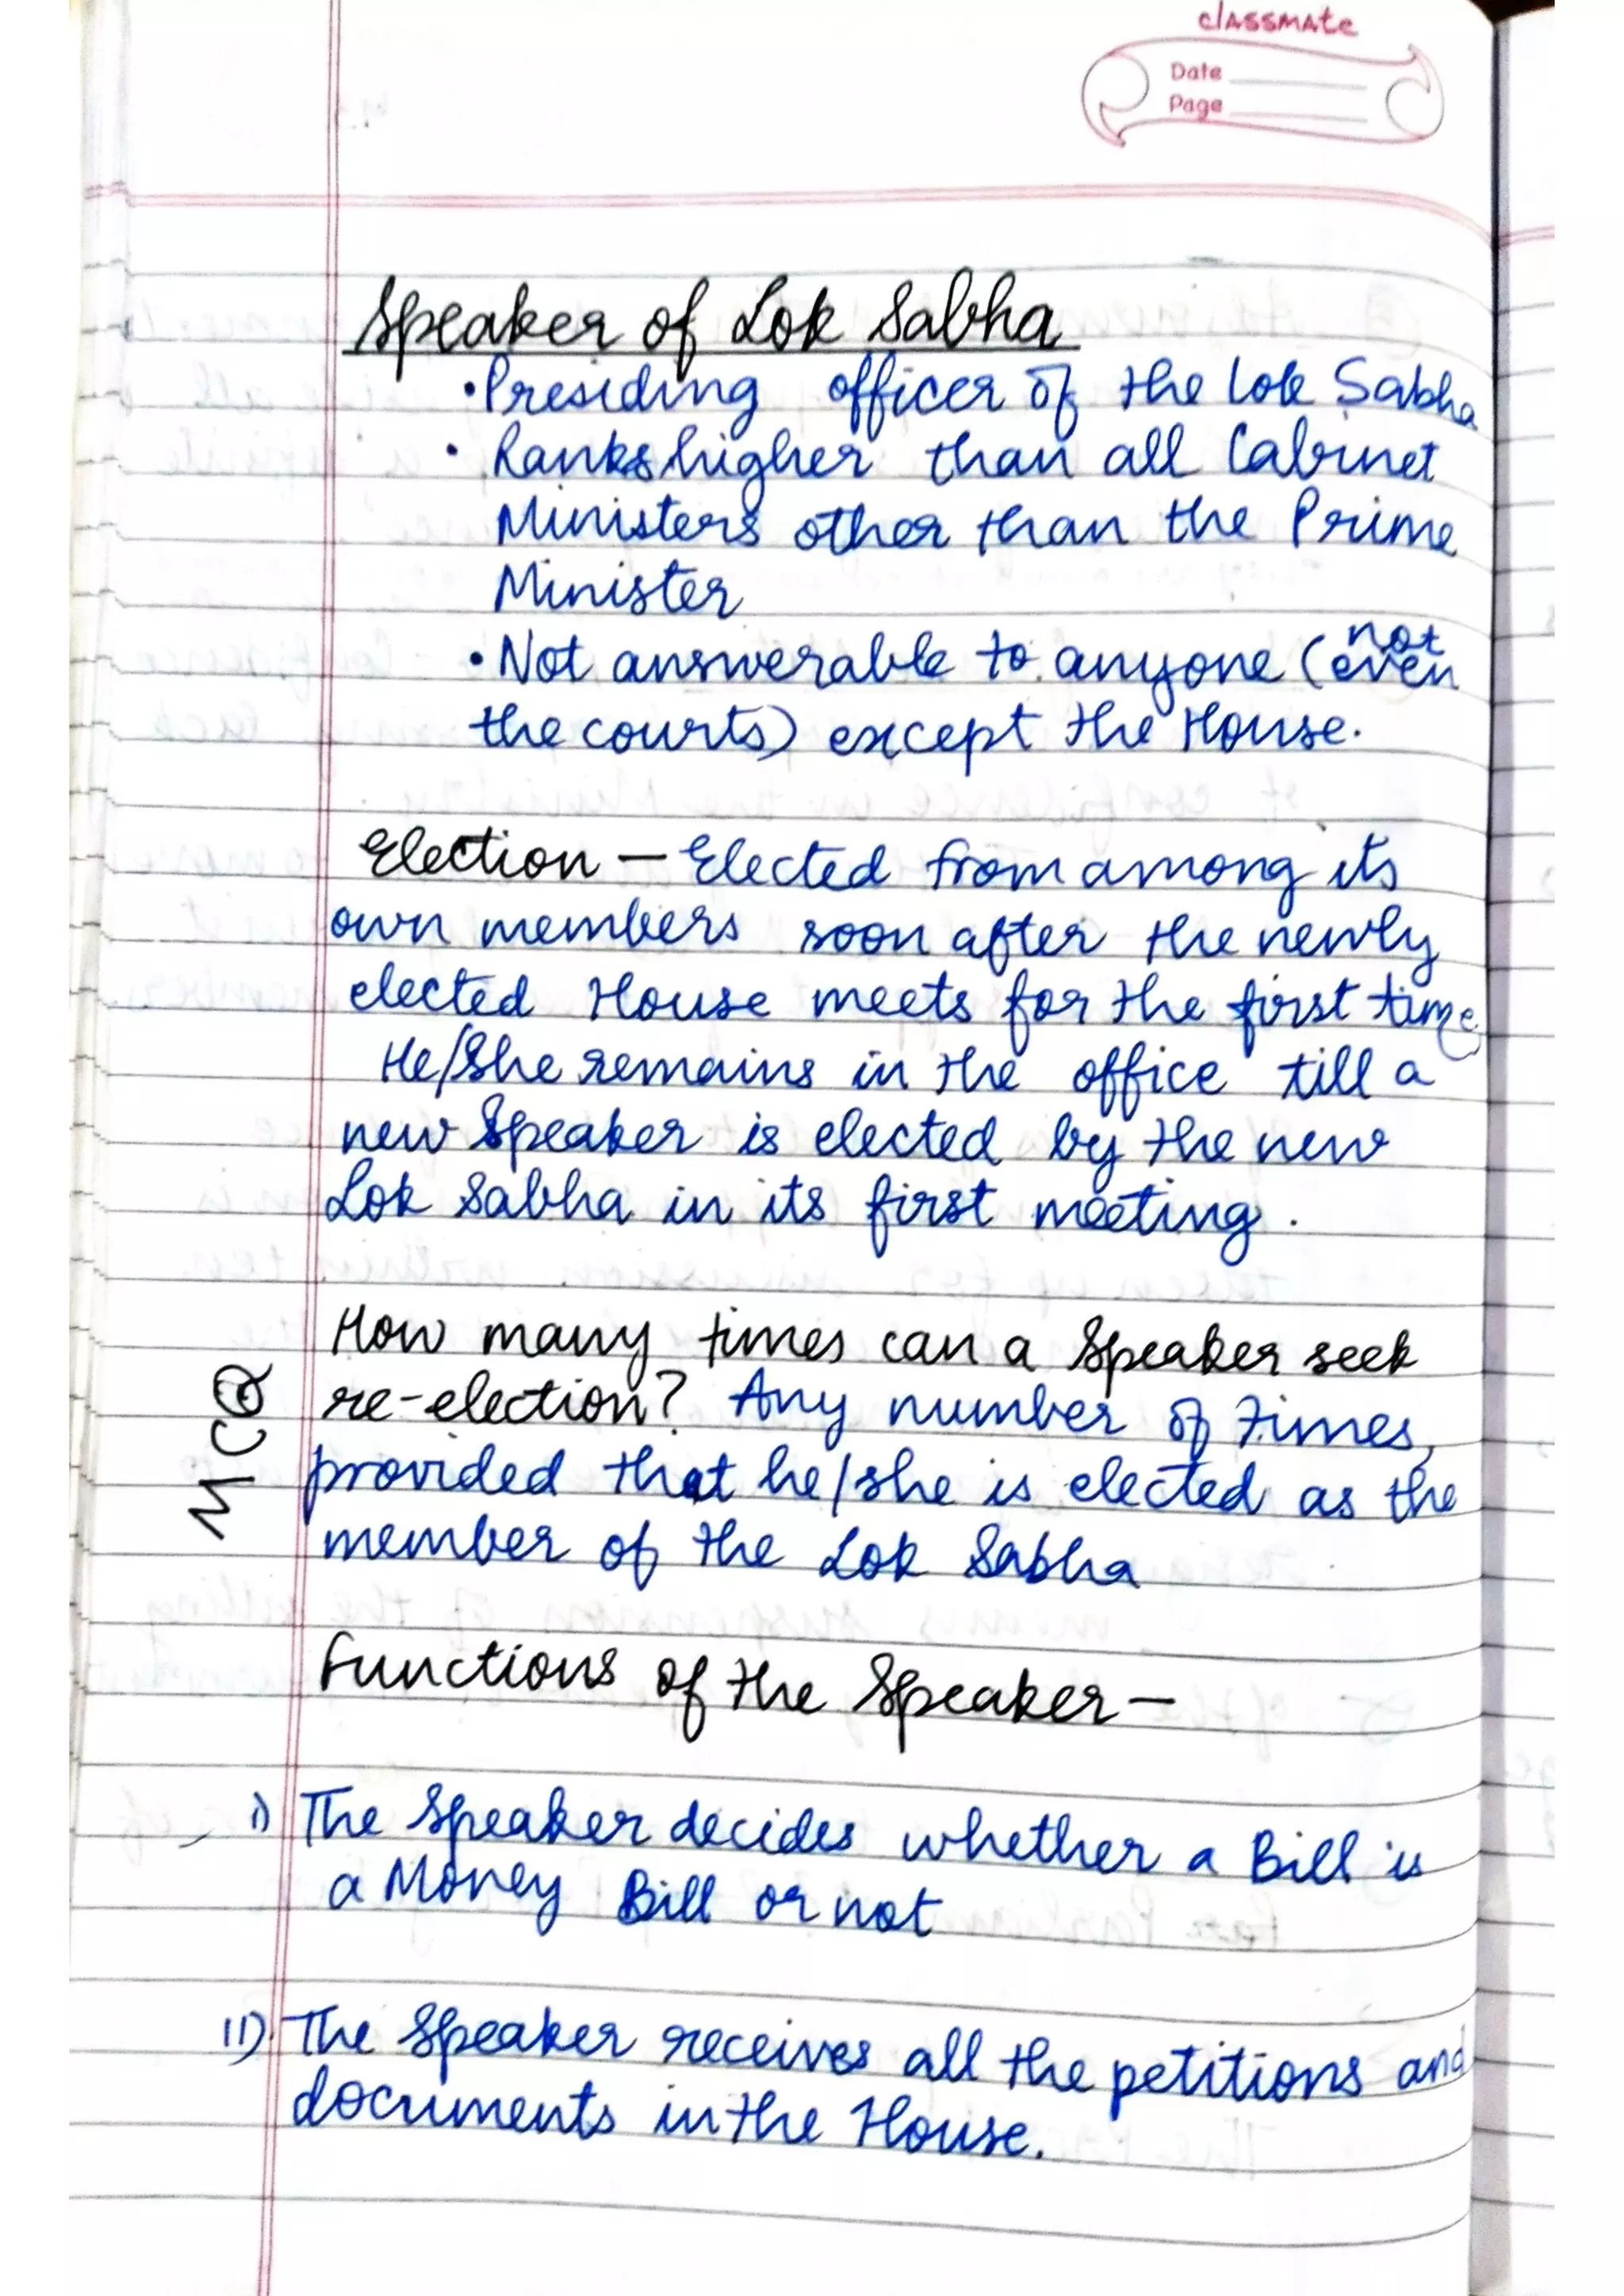 classmate
Date
Page
Speaker of Lok Sabha
• Presiding officer of the Lok Sabha
• Ranks higher than all Cabinet
Ministers other than the Prime
Minister
not
• Not answerable to anyone (even
the courts) except the House.
Election – Elected from among its
own members soon after the newly
elected House meets for the first time
He/She remains in the office till a
new Speaker is elected by the new
Lok Sabha in its first meeting.
How many times can a Speaker seek
MCQ
re-election? Any number of times,
provided that he/she is elected as the
member of the Lok Sabha
Functions of the Speaker –
i) The Speaker decides whether a Bill is
a Money Bill or not
ii) The Speaker receives all the petitions and
documents in the House.